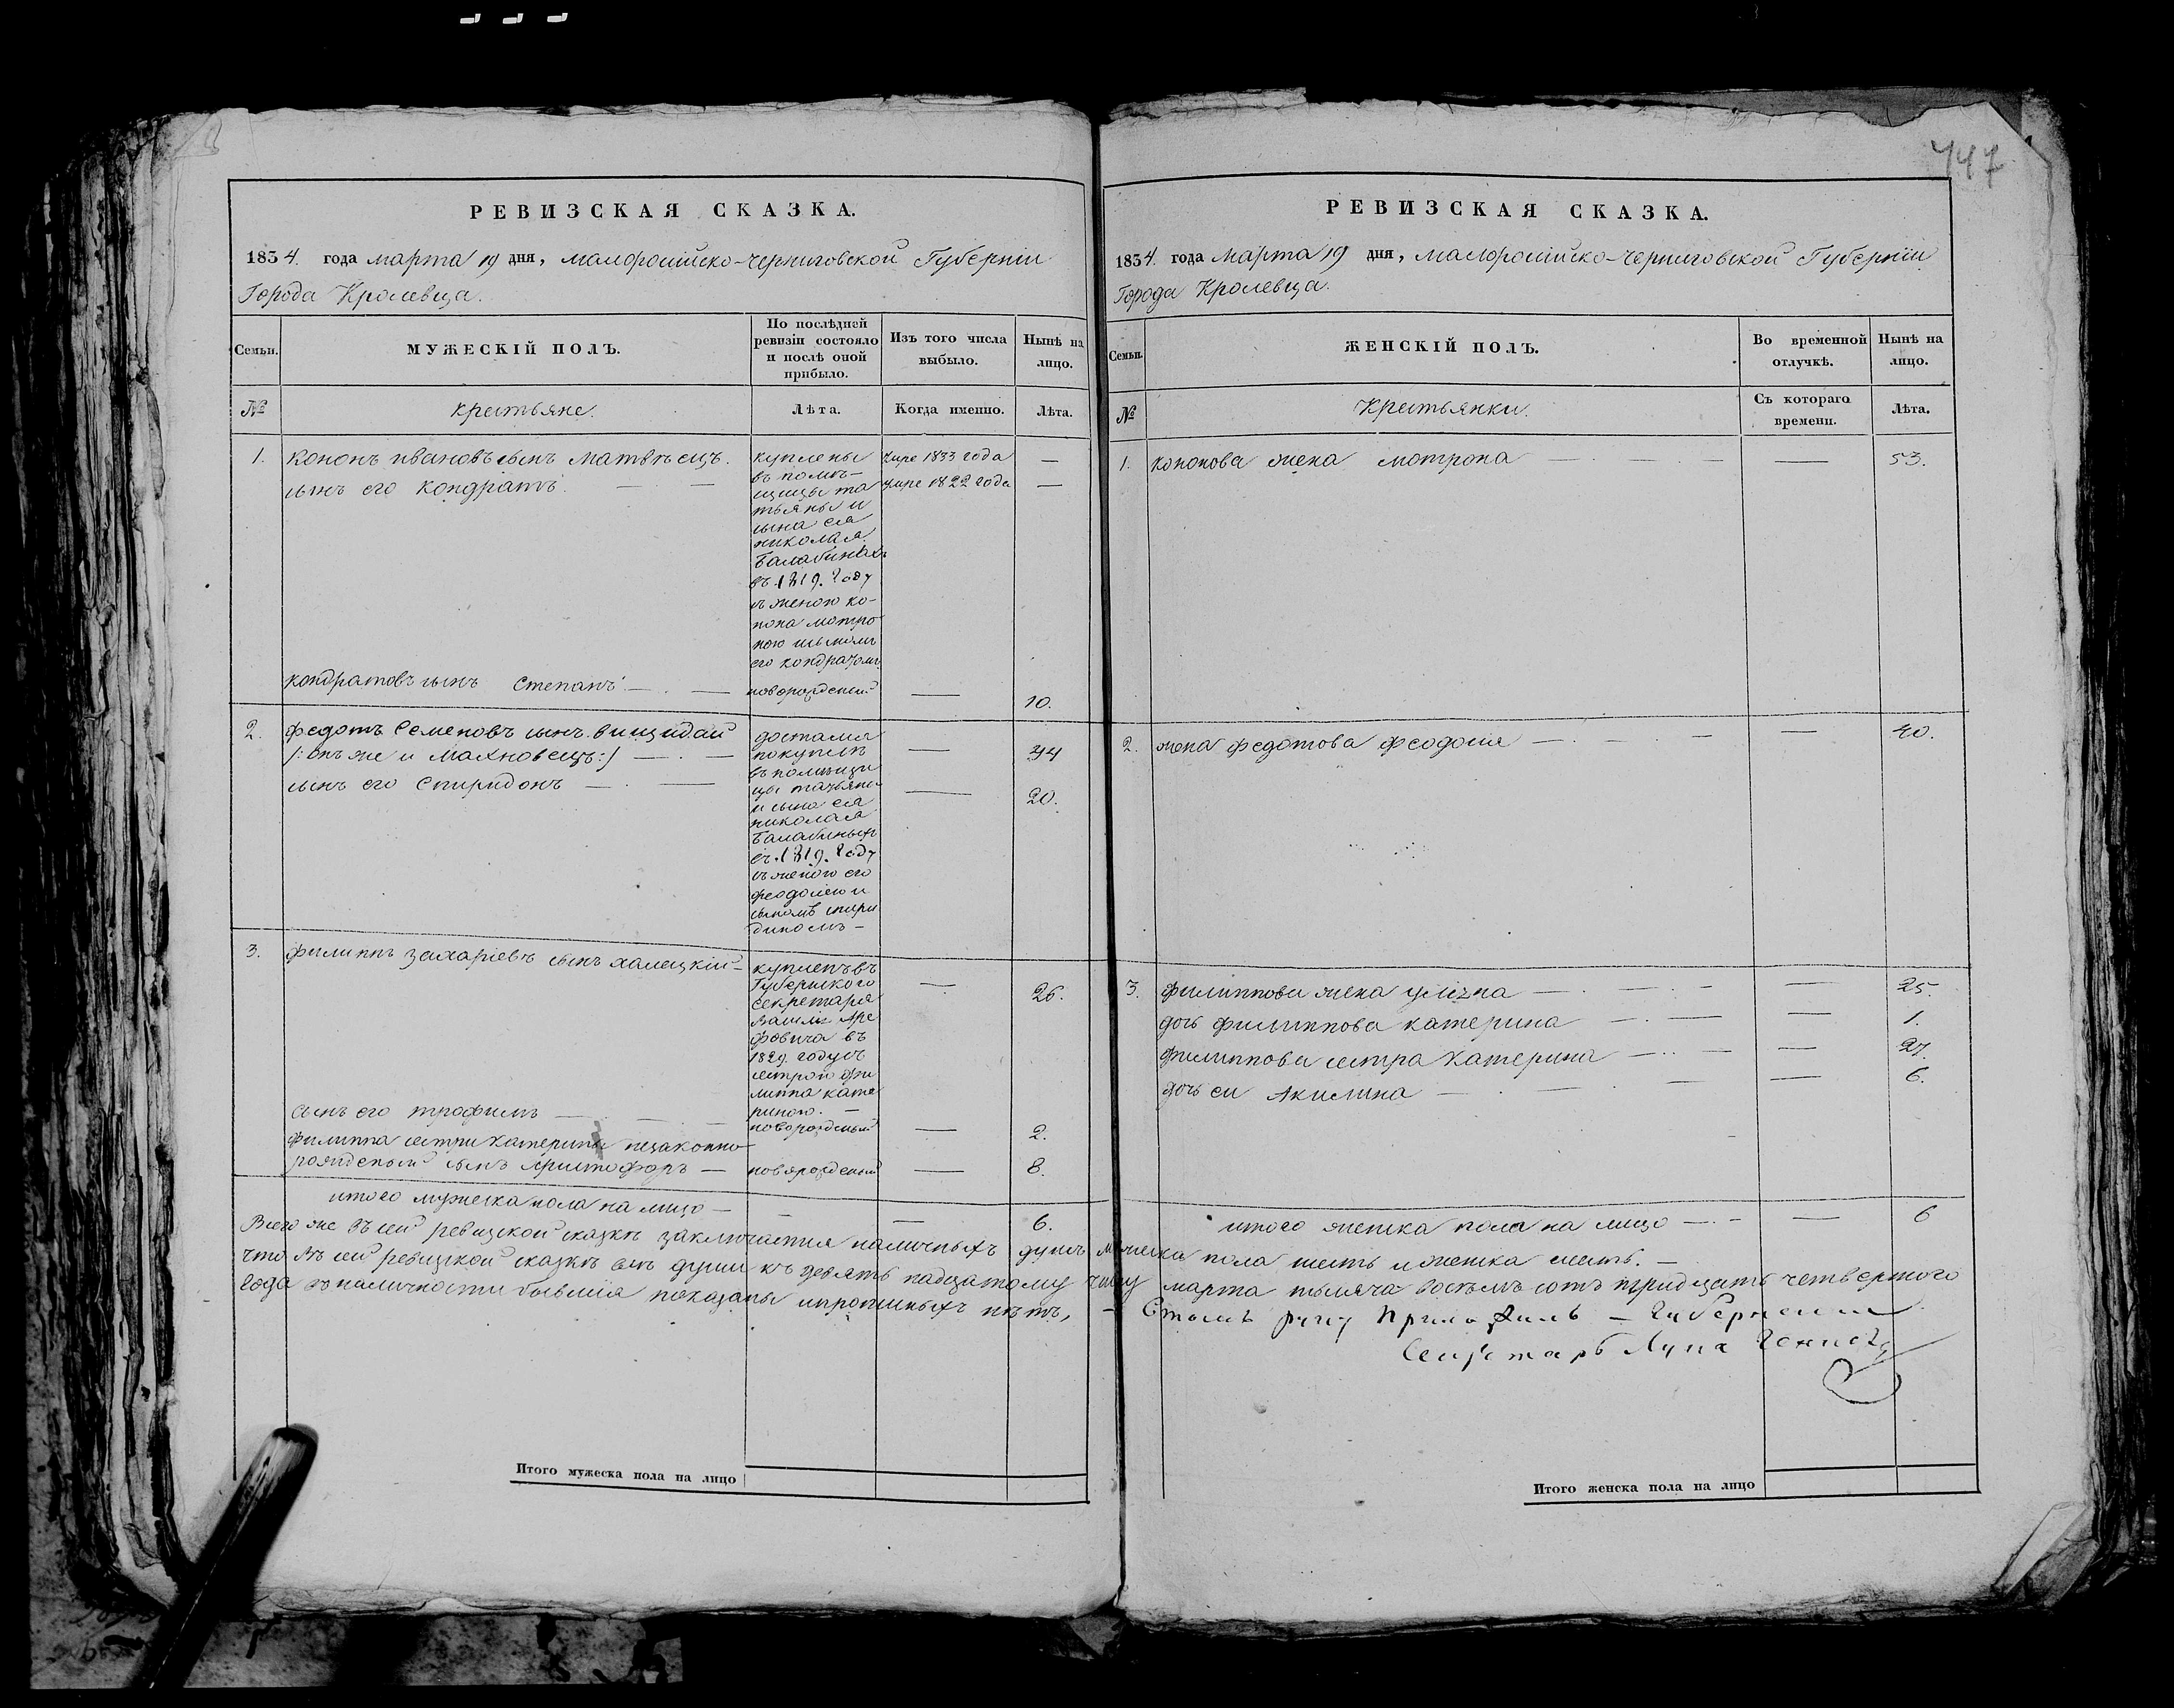 747
РЕВИЗСКАЯ СКАЗКА.
1834. года марта 19 дня, малороссійско-черниговской Губерніи
Города Кролевца.
Семьи.
МУЖЕСКІЙ ПОЛЪ.
По послѣдней
ревизіи состояло
и послѣ оной
прибыло.
Изъ того числа
выбыло.
Нынѣ на
лицо.
№
крестьяне.
Лѣта.
Когда именно.
Лѣта.
1. кононъ ивановъ сынъ матвѣецъ.
сынъ его кондратъ.
куплены
въ помѣ-
щицы та
тьяны и
сына ея
николая
Балабиныхъ
въ 1819. году
съ женою ко-
нона матро
ною и сыномъ
его кондратомъ
умре 1833 года —
умре 1822 года —
кондратовъ сынъ Степанъ — новорожденный — 10.
2. федотъ Семеновъ сынъ
/: онъ же и Махновецъ:/ — 44
сынъ его Спиридонъ — 20.
достался
покупкѣ
въ помѣщи
цы татьяны
и сына ея
николая
Балабиныхъ
въ 1819. году
съ женою его
феодосіею и
сыномъ спири
дономъ —
3. филиппъ захаріевъ сынъ халецкій — 26.
купленъ въ
Губернского
секретаря
Василія Аре
фовича въ
1829. году съ
сестрой фи
липпа кате
риною. —
сынъ его трофимъ — новорожденный — 2.
филиппа сестры катерины незаконно
рожденый сынъ христофоръ — новорожденый — 8.
итого мужеска пола на лицо — 6.
РЕВИЗСКАЯ СКАЗКА.
1834. года марта 19 дня, малороссійско-черниговской Губерніи
Города Кролевца.
Семьи.
ЖЕНСКІЙ ПОЛЪ.
Во временной
отлучкѣ.
Нынѣ на
лицо.
№
Крестьянки.
Съ котораго
времени.
Лѣта.
1. кононова жена мотрона — 53.
2. жена федотова феодосія — 40.
3. филиппова жена — 25.
дочь филиппова катерина — 1.
филиппова сестра катерина — 27.
дочь ей Акилина — 6.
итого женска пола на лицо — 6
Всего же въ сей ревизской сказкѣ заключается наличныхъ душъ мужеска пола шесть и женска шесть. —
что въ сей ревизской сказкѣ всѣ души къ девять надцатому числу марта тысяча восемъ сотъ тридцать четвертого
года въ наличности бывшія показаны и прописныхъ нѣтъ, —
Губернскии
Секретарь Лука
Итого мужеска пола на лицо
Итого женска пола на лицо